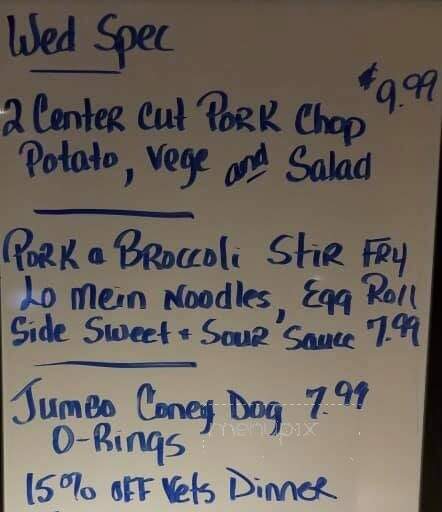 Wed Spec
$9.99
2 Center Cut Pork Chop
Potato, Vege and Salad
Pork & Broccoli Stir Fry
Lo Mein Noodles, Egg Roll
Side Sweet + Sour Sauce 7.99
Jumbo Coney Dog 7.99
O-Rings
menupix
15% OFF Vets Dinner